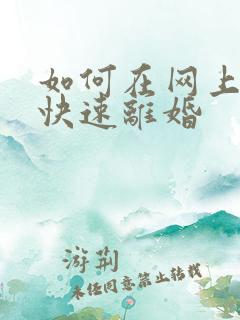 如何在网上
快速離婚
游荊
未经同意禁止转载